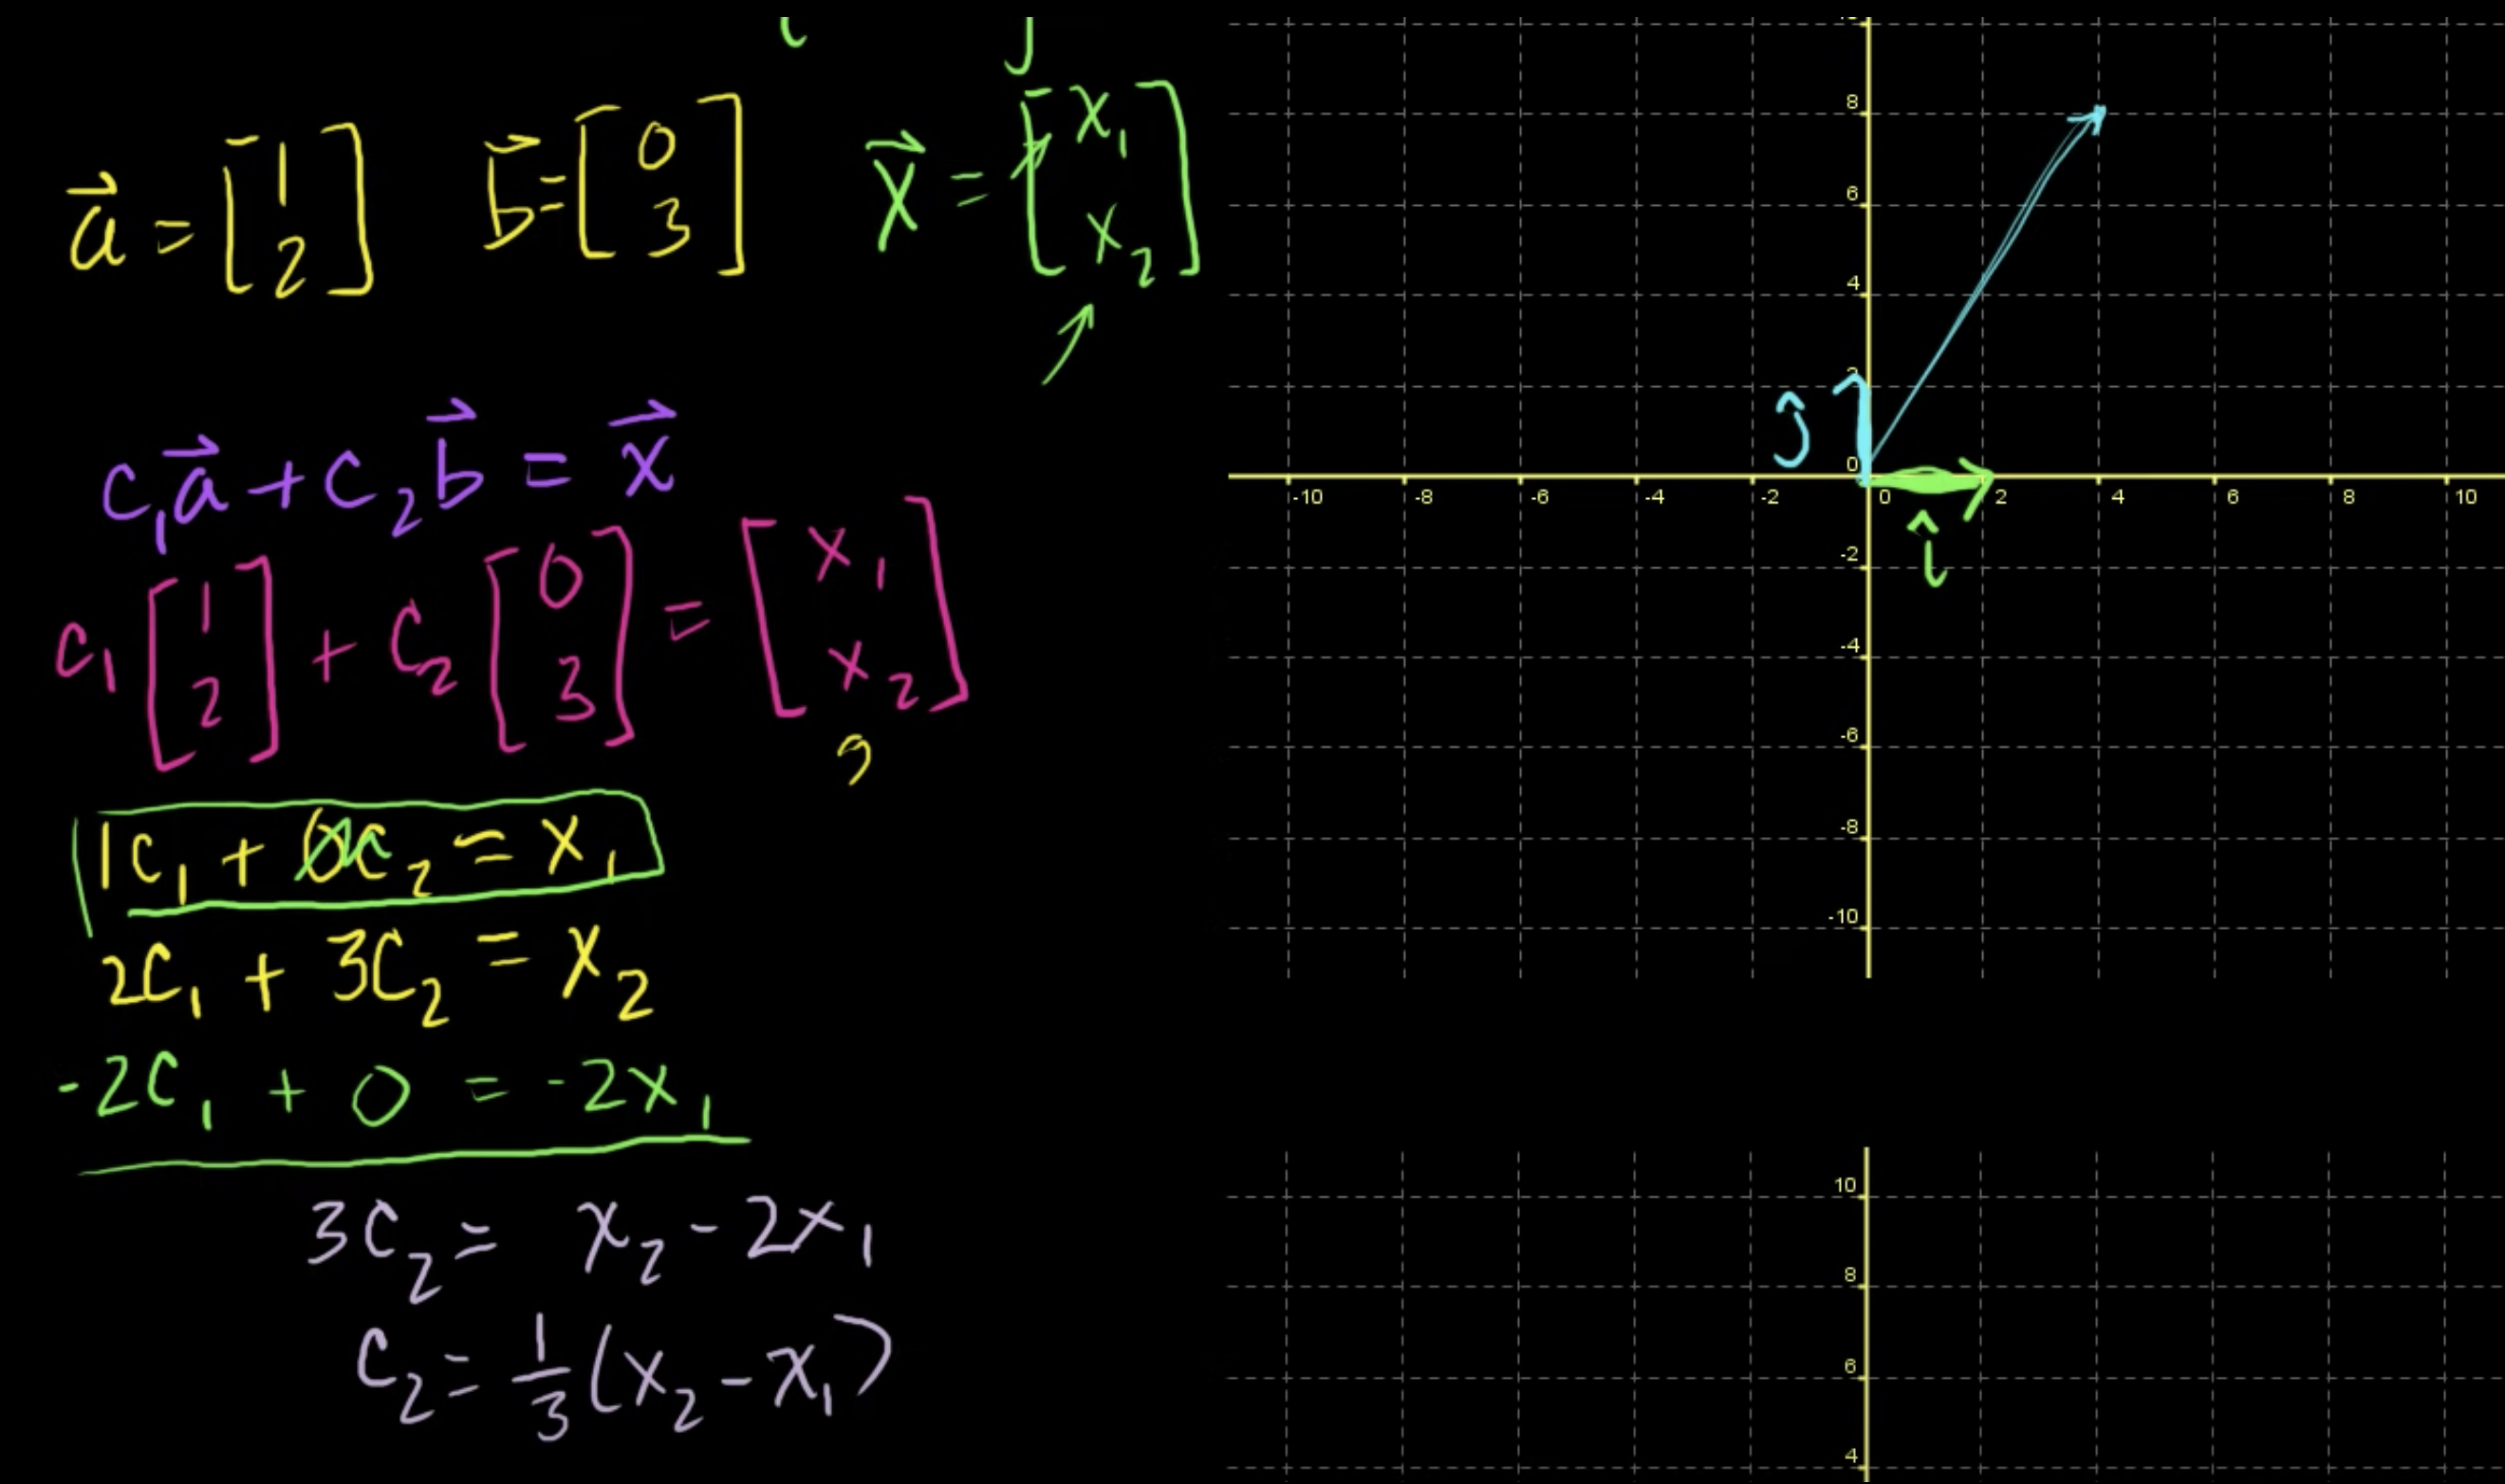 i j
a⃗ = [1 2] b⃗ = [0 3] x⃗ = [x₁ x₂]
c₁a⃗ + c₂b⃗ = x⃗
c₁[1 2] + c₂[0 3] = [x₁ x₂]
1c₁ + 0c₂ = x₁
2c₁ + 3c₂ = x₂
-2c₁ + 0 = -2x₁
3c₂ = x₂ - 2x₁
c₂ = 1/3(x₂ - x₁)
10
8
6
4
2
ĵ
0
-10 -8 -6 -4 -2 0 2 4 6 8 10
î
-2
-4
-6
-8
-10
10
8
6
4